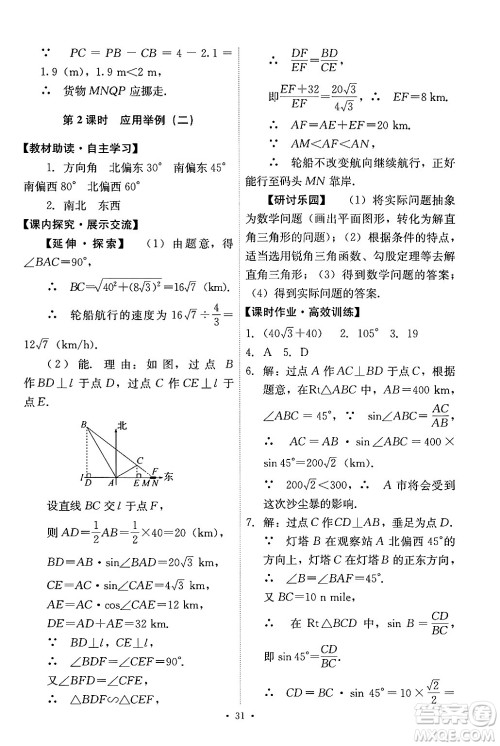 ∵ PC = PB − CB = 4 − 2.1 =
1.9（m），1.9 m＜2 m，
∴ 货物 MNQP 应挪走.
第 2 课时 应用举例（二）
【教材助读·自主学习】
1. 方向角 北偏东30° 南偏东45°
南偏西80° 北偏西60°
2. 南北 东西
【课内探究·展示交流】
【延伸·探索】 （1）由题意，得
∠BAC=90°.
∴ BC=√(40²+(8√3)²)=16√7（km）.
∴ 轮船航行的速度为16√7÷4/3=
12√7（km/h）.
（2）能. 理由：如图，过点 B
作BD⊥l于点D，过点C作CE⊥l于
点E.
B 北 C l D A E M N F 东
设直线BC交l于点F，
则 AD=1/2AB=1/2×40=20（km）.
BD=AB·sin∠BAD=20√3（km），
CE=AC·sin∠CAE=4√3（km），
AE=AC·cos∠CAE=12（km）.
DE=AD+AE=32 km.
∵ ∠BDF=∠CEF=90°，
∠BFD=∠CFE，
∴ △BDF∽△CEF.
∴ DF/EF=BD/CE.
即(EF+32)/EF=20√3/4√3. ∴ EF=8 km.
∵ AM＜AF＜AN，
∴ 轮船不改变航向继续航行，正好能行至码头 MN 靠岸.
【研讨乐园】 （1）将实际问题抽象
为数学问题（画出平面图形，转化为解直
角三角形的问题）. （2）根据条件的特点，
适当选用锐角三角函数、勾股定理等去解
直角三角形. （3）得到数学问题的答案.
（4）得到实际问题的答案.
【课时作业·高效训练】
1.（40√3+40） 2. 105° 3. 19
4. A 5. D
6. 解：过点 A 作 AC⊥BD 于点 C，根据
题意，在Rt△ABC中，sin∠ABC=AC/AB，
∠ABC = 45°，AB = 400 km，
∴ AC = AB · sin∠ABC = 400 ×
sin 45°=200√2（km）.
∵ 200√2＜300， ∴ A 市将受到
这次沙尘暴的影响.
7. 解：过点 C 作CD⊥AB，垂足为点 D.
∵ 灯塔 B 在观察站 A 北偏西45°
的方向，灯塔C在灯塔B的正东方向，
∴ ∠B=∠BAF=45°. ∵ BC=
10 n mile，
∴ 在 Rt△BCD中，sin B=CD/BC，
即sin 45°=CD/BC.
∴ CD=BC·sin 45°=10×√2/2=
· 31 ·